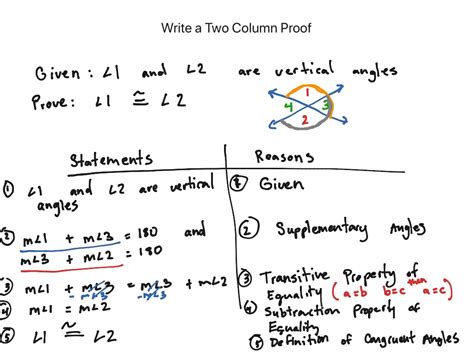 Write a Two Column Proof
Given : ∠1 and ∠2 are vertical angles
Prove : ∠1 ≅ ∠2
1
4 3
2
Statements Reasons
① ∠1 and ∠2 are vertical angles
① Given
② m∠1 + m∠3 = 180 and
m∠3 + m∠2 = 180
② Supplementary Angles
③ m∠1 + m∠3 = m∠3 + m∠2
-m∠3 -m∠3
③ Transitive Property of
Equality (a=b b=c then a=c)
④ m∠1 = m∠2
④ Subtraction Property of
Equality
⑤ ∠1 ≅ ∠2
⑤ Definition of Congruent Angles